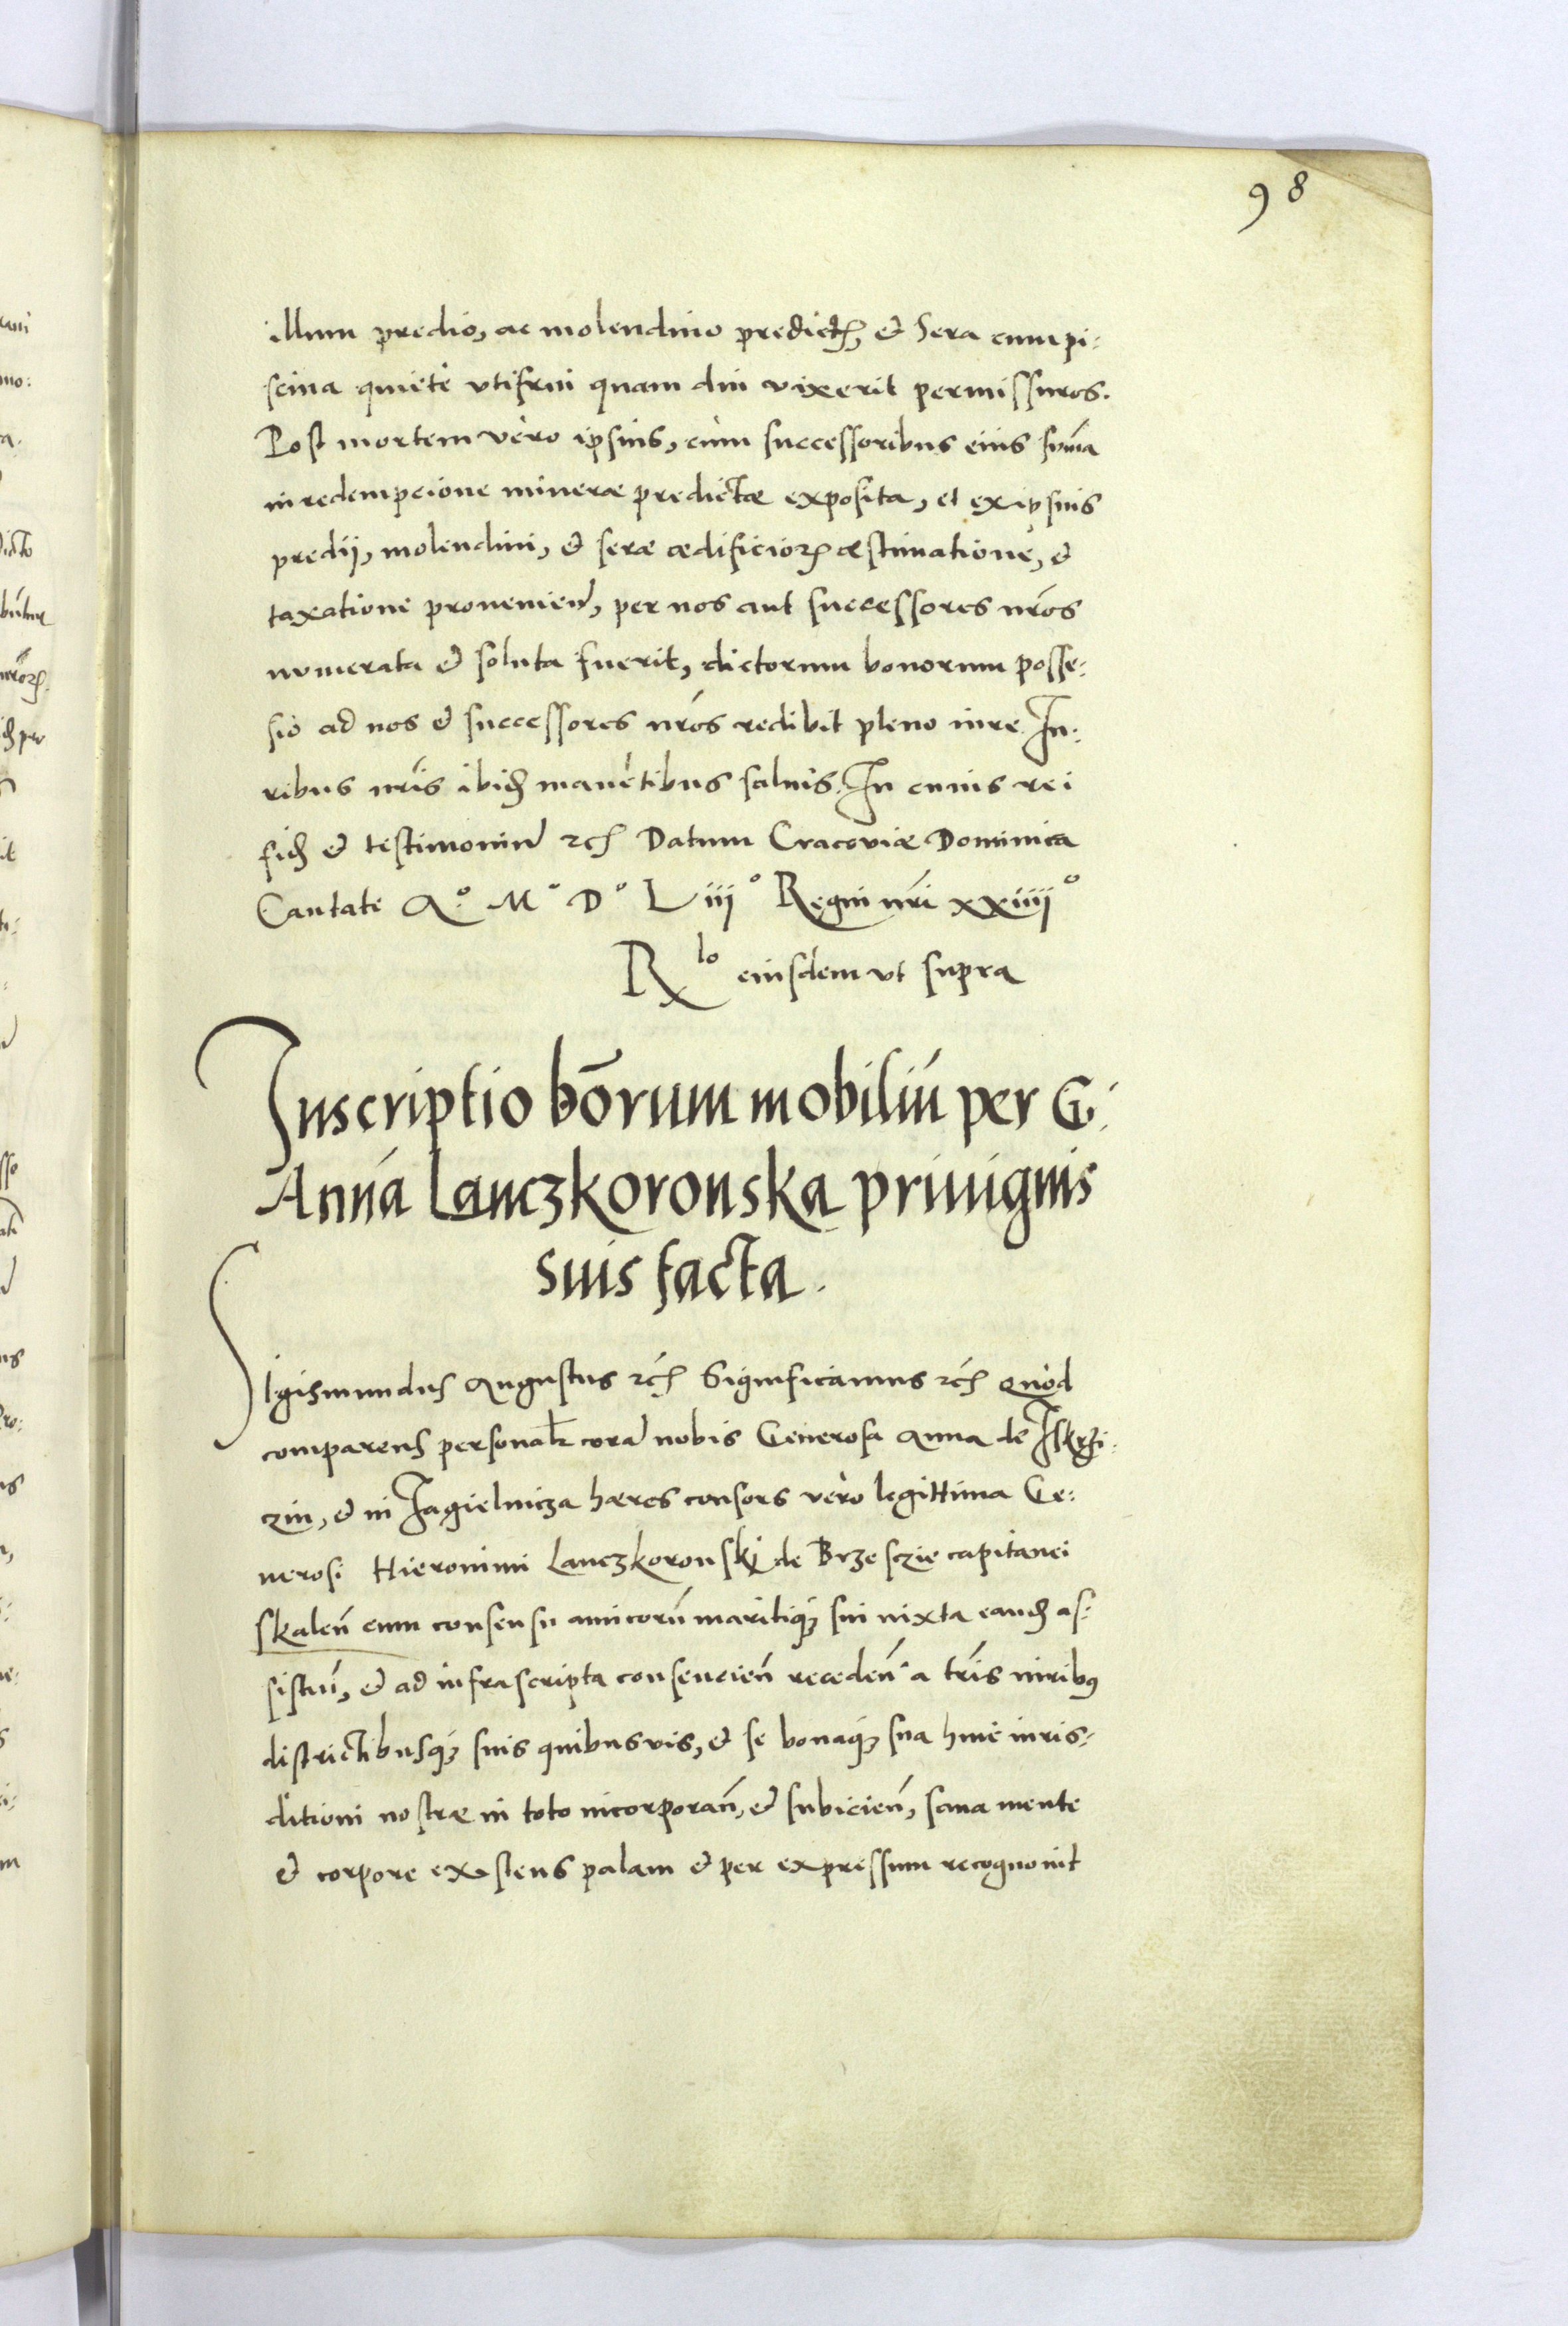 98
illum predio, ac molendino predictꝭ, et Sera cum pi:
scina quiete vtifrui quam diu vixerit permissuros.
Post mortem vero ipsius, cum successoribus eius sum̄a
in redempcione mineræ predictæ exposita, et ex ipsius
predii, molendini, et seræ ædificioꝝ æstimatione, et
taxatione provenien̄, per nos aut successores nr̄os
numerata et soluta fuerit, dictorum bonorum posse:
sio ad nos et successores nr̄os redibit pleno iure Iu:
ribus nr̄is ibid manētibus saluis. In cuius rei
fid et testimoniū ⁊c Datum Cracoviæ Dominica
Cantate A.º Mº Dº Liijº Regni nr̄i xxiiijº
Rlo eiusdem vt supra
Inscriptio bōrum mobiliū per G:
Annā Lanczkoronska priuignis
suis facta.
Sigismundus Augustus ⁊c Significamus ⁊c Quod
comparens personalr corā nobis Generosa Anna de Iskrzi:
czin, et in Jagielnicza hæres consors vero legittima Ge:
nerosi Hieronimi Lanczkoronskj de Brzesczie capitanei
skalen̄ cum consensu amicorū maritiqꝫ sui iuxta eand as:
sistēn, et ad infrascripta consencien̄ receden̄ a tr̄is iuribꝰ
districtibusqꝫ suis quibusvis, et se bonaqꝫ sua huic iuris:
ditioni nostræ in toto incorporan̄, et subicien̄, sana mente
et corpore existens palam et per expressum recognouit